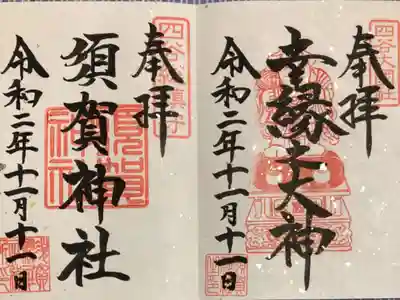 奉拝
幸縁大神
令和二年十一月十一日
四谷総鎮守
奉拝
須賀神社
須賀神社
令和二年十一月十一日